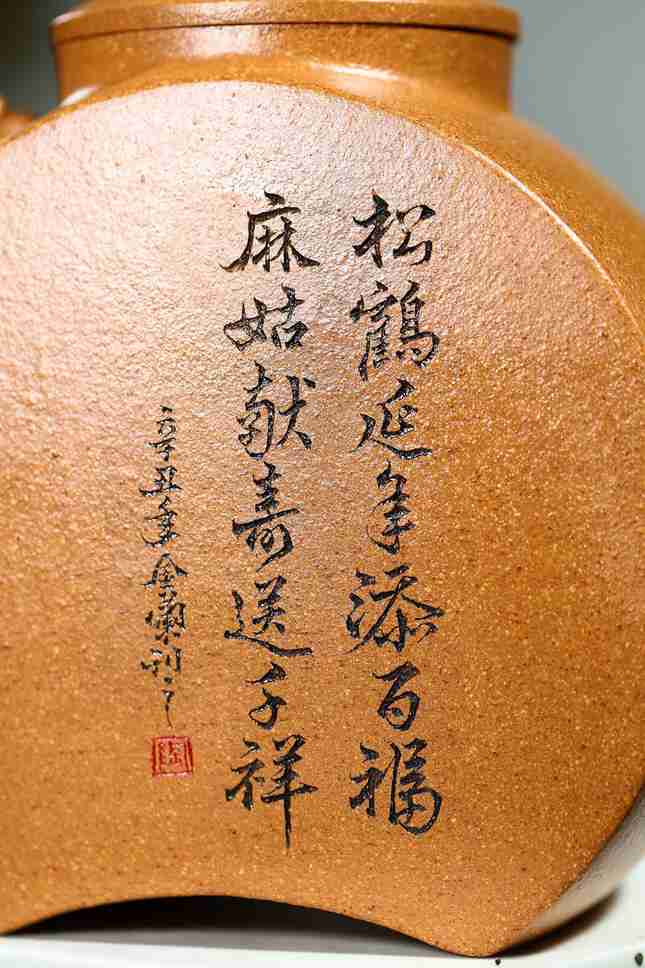 松鹤延年添百福
麻姑献寿送千祥
辛丑年金